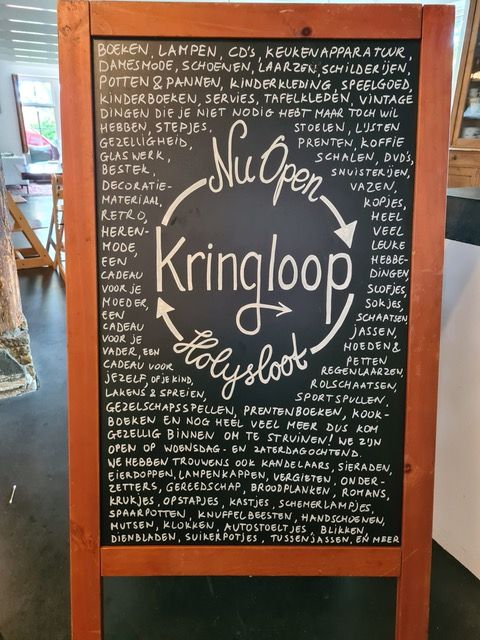 BOEKEN, LAMPEN, CD'S, KEUKENAPPARATUUR,
DAMESMODE, SCHOENEN, LAARZEN, SCHILDERIJEN,
POTTEN & PANNEN, KINDERKLEDING, SPEELGOED,
KINDERBOEKEN, SERVIES, TAFELKLEDEN, VINTAGE
DINGEN DIE JE NIET NODIG HEBT MAAR TOCH WIL
HEBBEN, STEPJES,
GEZELLIGHEID,
GLASWERK,
BESTEK,
DECORATIE-
MATERIAAL,
RETRO,
HEREN-
MODE,
EEN
CADEAU
VOOR JE
MOEDER,
EEN
CADEAU
VOOR JE
VADER, EEN
CADEAU VOOR
JEZELF, OF JE KIND,
LAKENS & SPREIEN,
Nu Open
Kringloop
Holysloot
STOELEN, LIJSTEN
PRENTEN, KOFFIE
SCHALEN, DVD'S,
SNUISTERIJEN,
VAZEN,
KOPJES,
HEEL
VEEL
LEUKE
HEBBE-
DINGEN,
SLOFJES,
SOKJES,
SCHAATSEN,
JASSEN,
HOEDEN &
PETTEN
REGENLAARZEN,
ROLSCHAATSEN,
SPORTSPULLEN,
GEZELSCHAPSSPELLEN, PRENTENBOEKEN, KOOK-
BOEKEN EN NOG HEEL VEEL MEER DUS KOM
GEZELLIG BINNEN OM TE STRUINEN! WE ZIJN
OPEN OP WOENSDAG- EN ZATERDAGOCHTEND.
WE HEBBEN TROUWENS OOK KANDELAARS, SIERADEN,
EIERDOPPEN, LAMPENKAPPEN, VERGIETEN, ONDER-
ZETTERS, GEREEDSCHAP, BROODPLANKEN, ROMANS,
KRUKJES, OPSTAPJES, KASTJES, SCHEMERLAMPJES,
SPAARPOTTEN, KNUFFELBEESTEN, HANDSCHOENEN,
MUTSEN, KLOKKEN, AUTOSTOELTJES, BLIKKEN,
DIENBLADEN, SUIKERPOTJES, TUSSENJASSEN, EN MEER